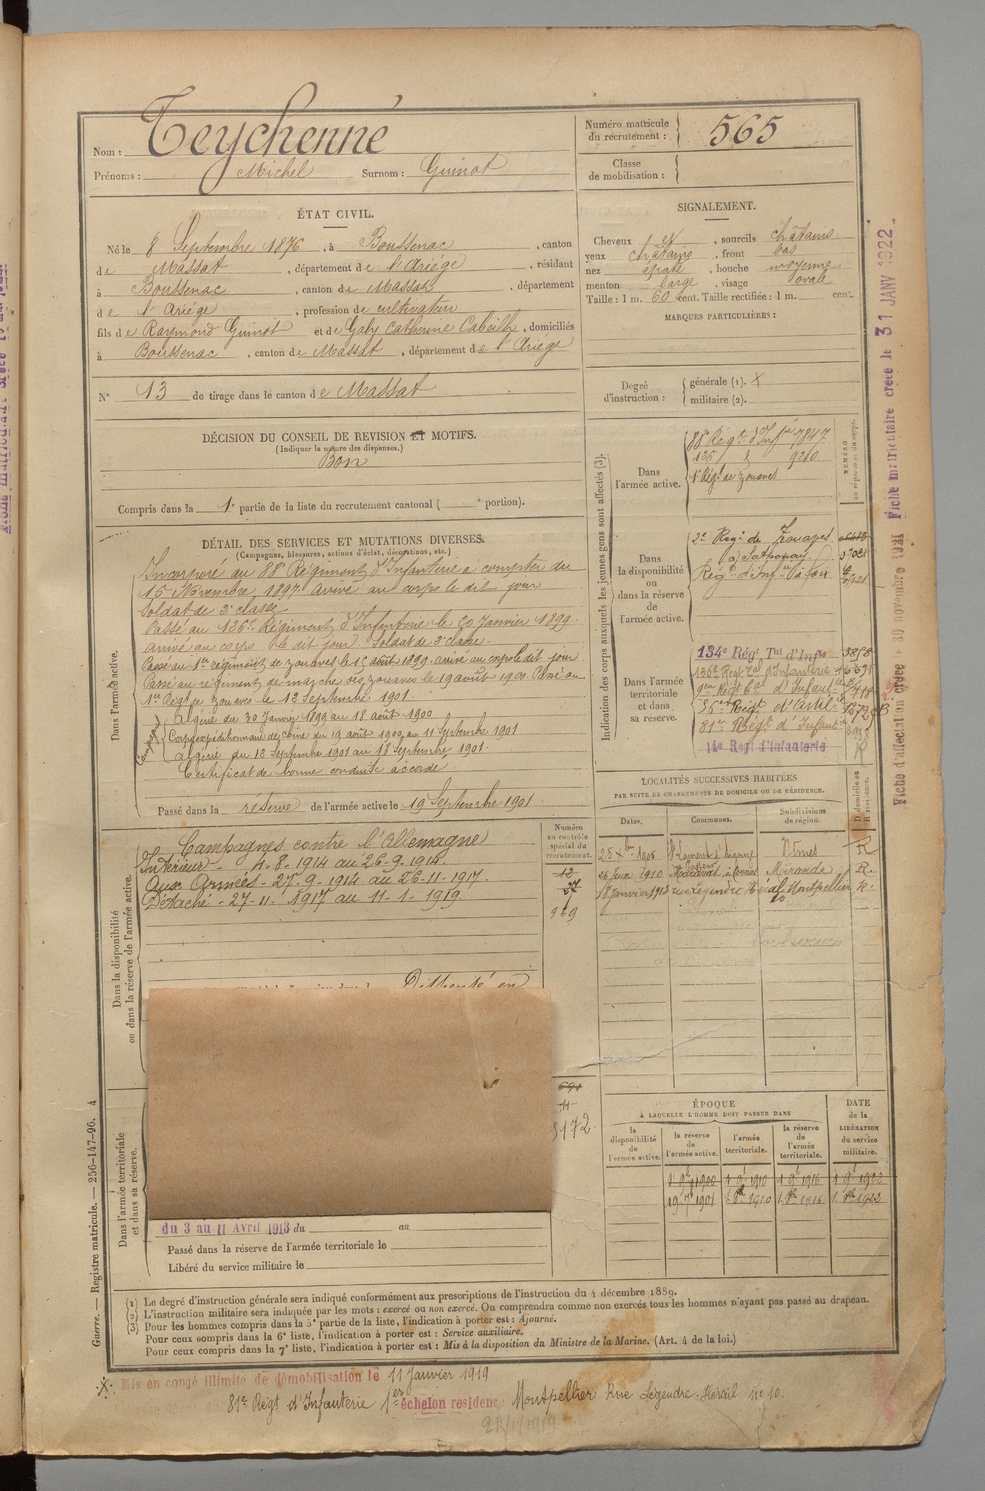 Nom : Teychenné
Prénoms : Michel Surnom : Guinot
Numéro matricule
du recrutement : 565
Classe
de mobilisation :
ÉTAT CIVIL.
Né le 8 Septembre 1876, à Boussenac, canton
de Massat, département de l'Ariége, résidant
à Boussenac, canton de Massat, département
de l'Ariége, profession de cultivateur
fils de Raymond Guinot et de Gaby Catherine Cabeilh, domiciliés
à Boussenac, canton de Massat, département de l'Ariége
N° 13 de tirage dans le canton de Massat
SIGNALEMENT.
Cheveux et, sourcils châtains
yeux châtains, front bas
nez épaté, bouche moyenne
menton large, visage ovale
Taille : 1 m. 60 cent. Taille rectifiée : 1 m. cent.
MARQUES PARTICULIÈRES :
Degré
d'instruction :
générale (1). X
militaire (2).
DÉCISION DU CONSEIL DE REVISION ET MOTIFS.
(Indiquer la nature des dispenses.)
Bon
Compris dans la 1e partie de la liste du recrutement cantonal ( e portion).
DÉTAIL DES SERVICES ET MUTATIONS DIVERSES.
(Campagnes, blessures, actions d'éclat, décorations, etc.)
Dans l'armée active.
Incorporé au 88e Régiment d'Infanterie à compter du
16 Novembre 1897. Arrivé au corps le dit jour
soldat de 2e classe
Passé au 136e Régiment d'Infanterie le 20 Janvier 1899.
arrivé au corps le dit jour. Soldat de 2e classe.
Passé au 1er régiment de zouaves le 1er août 1899. arrivé au corps le dit jour
Passé au régiment de marche des zouaves le 19 août 1900. Passé au
1er Régt de zouaves le 12 Septembre 1901
Algérie du 30 Janvier 1899 au 18 août 1900
Corps expéditionnaire de chine du 19 août 1900 au 11 Septembre 1901
Algérie du 12 Septembre 1901 au 18 Septembre 1901.
Certificat de bonne conduite accordé
Passé dans la réserve de l'armée active le 19 Septembre 1901
Indication des corps auxquels les jeunes gens sont affectés (3).
NUMÉRO
au répertoire du corps.
Dans
l'armée active.
88e Régt d'Inf 7847
136e d 9210
1er Régt de zouaves
Dans
la disponibilité
ou
dans la réserve
de
l'armée active.
2e Régt de Zouaves
Régt d'Infie
Dans l'armée
territoriale
et dans
sa réserve.
134e Régt Tal d'Infie
136e Régt Tal d'Infanterie
81e Régt d'Infant
LOCALITÉS SUCCESSIVES HABITÉES
PAR SUITE DE CHANGEMENTS DE DOMICILE OU DE RÉSIDENCE.
Dates. Communes. Subdivisions
de région.
D. domicile ou
R. résidence.
25 Xbre 1906 Nîmes R
26 Juin 1910 Mirande R.
18 Janvier 1913 rue Legendre Hérail 10 Montpellier R.
Dans la disponibilité
ou dans la réserve de l'armée active.
Campagnes contre l'Allemagne
Intérieur - 4-8-1914 au 26-9-1914.
Aux Armées - 27-9-1914 au 26-11-1917.
Détaché - 27-11-1917 au 11-1-1919.
Numéro
au contrôle
spécial du
recrutement.
12
969
691
11
5172
Dans l'armée territoriale
et dans sa réserve.
du 3 au 11 Avril 1913 du au
Passé dans la réserve de l'armée territoriale le
Libéré du service militaire le
ÉPOQUE
À LAQUELLE L'HOMME DOIT PASSER DANS
DATE
de la
LIBÉRATION
du service
militaire.
la
disponibilité
de
l'armée active.
la réserve
de
l'armée active.
l'armée
territoriale.
la réserve
de
l'armée
territoriale.
1 9e 1900 1 9e 1910 1 9e 1916 1 9e 1922
19 7e 1901 1 8e 1910 1 8e 1916 1 8e 1922
(1) Le degré d'instruction générale sera indiqué conformément aux prescriptions de l'instruction du 4 décembre 1889.
(2) L'instruction militaire sera indiquée par les mots : exercé ou non exercé. On comprendra comme non exercés tous les hommes n'ayant pas passé au drapeau.
(3) Pour les hommes compris dans la 5e partie de la liste, l'indication à porter est : Ajourné.
Pour ceux compris dans la 6e liste, l'indication à porter est : Service auxiliaire.
Pour ceux compris dans la 7e liste, l'indication à porter est : Mis à la disposition du Ministre de la Marine. (Art. 4 de la loi.)
Guerre. — Registre matricule. — 256-147-96. 4
Mis en congé illimité de démobilisation le 11 Janvier 1919
81e Régt d'Infanterie 1er échelon residence Montpellier Rue Legendre-Hérail no 10.
Fiche d'affectation créée le 30 novembre 1921 Fiche matriculaire créée le 31 JANV 1922